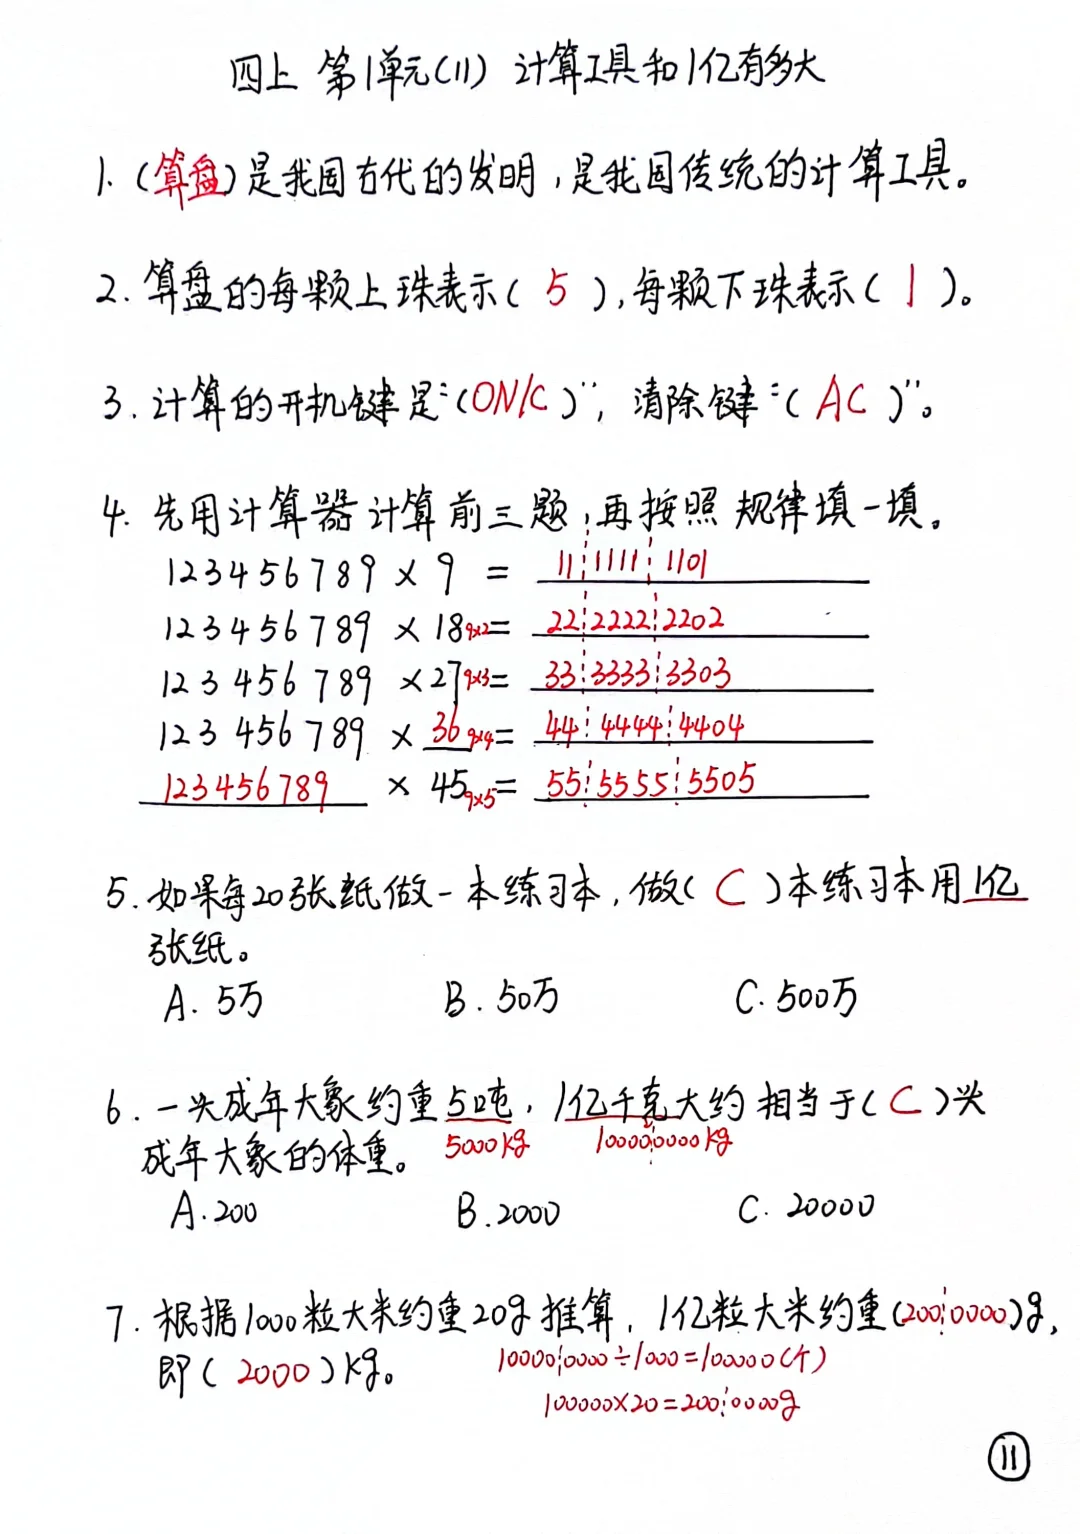 四上 第1单元(11) 计算工具和1亿有多大
1. (算盘)是我国古代的发明,是我国传统的计算工具。
2. 算盘的每颗上珠表示( 5 ),每颗下珠表示( 1 )。
3. 计算的开机键是“(ON/C)”, 清除键“( AC )”。
4. 先用计算器计算前三题,再按照规律填一填。
123456789 × 9 = 11¦1111¦1101
123456789 × 18 9×2 = 22¦2222¦2202
123456789 × 27 9×3 = 33¦3333¦3303
123456789 × 36 9×4 = 44¦4444¦4404
123456789 × 45 9×5 = 55¦5555¦5505
5. 如果每20张纸做一本练习本,做( C )本练习本用1亿
张纸。
A. 5万 B. 50万 C. 500万
6. 一头成年大象约重5吨,1亿千克大约相当于( C )头
5000kg 10000¦0000kg
成年大象的体重。
A. 200 B. 2000 C. 20000
7. 根据1000粒大米约重20g推算,1亿粒大米约重(200¦0000)g,
即( 2000 )kg。 10000¦0000÷1000=100000(个)
100000×20=200¦0000g
11